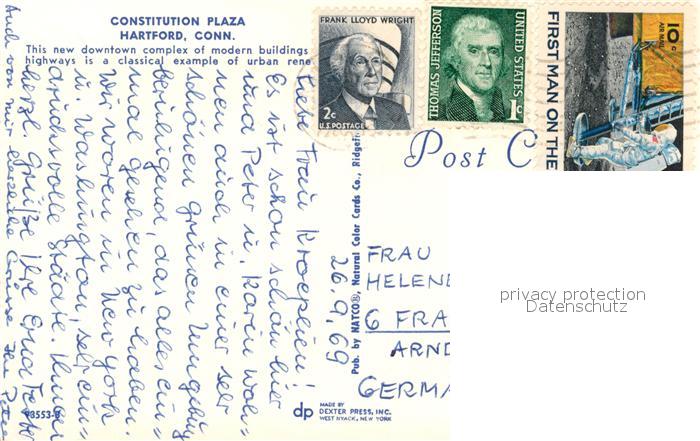 CONSTITUTION PLAZA
HARTFORD, CONN.
This new downtown complex of modern buildings
highways is a classical example of urban rene
FRANK LLOYD WRIGHT
2c
U.S. POSTAGE
THOMAS JEFFERSON
UNITED STATES
1c
10c
AIR MAIL
FIRST MAN ON THE
Post C
26.9.69
Liebe Frau Kroeplien!
Es ist schon schön hier
und Peter u. Karin woh=
nen auch in einer sehr
schönen grünen Umgebung
beruhigend, das alles ein=
mal gesehen zu haben.
Wir waren in New York
u. Washington, sehr ein=
drucksvolle Städte. Ihnen
herzl. Grüße Ihre
Auch von mir herzliche Grüsse Ihr Peter
Pub. by NATCO®, Natural Color Cards Co., Ridgefi
FRAU
HELENE
6 FRA
ARND
GERMA
privacy protection
Datenschutz
dp
MADE BY
DEXTER PRESS, INC.
WEST NYACK, NEW YORK